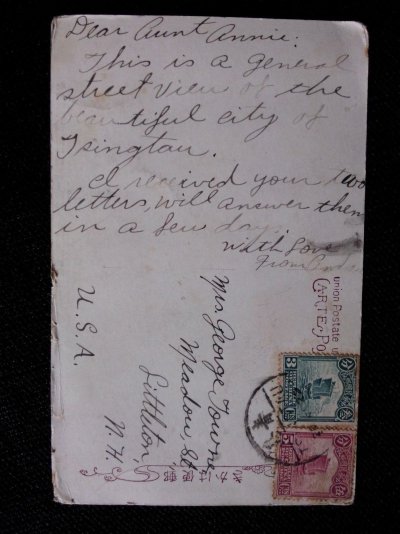 Dear Aunt Annie:
This is a general
street view of the
beautiful city of
Tsingtau.
I received your two
letters, will answer them
in a few days.
With Love
From
Mrs. George Towne,
Meadow St.
Littleton,
N.H.
U.S.A.
Union Postale
CARTE PO
3
5